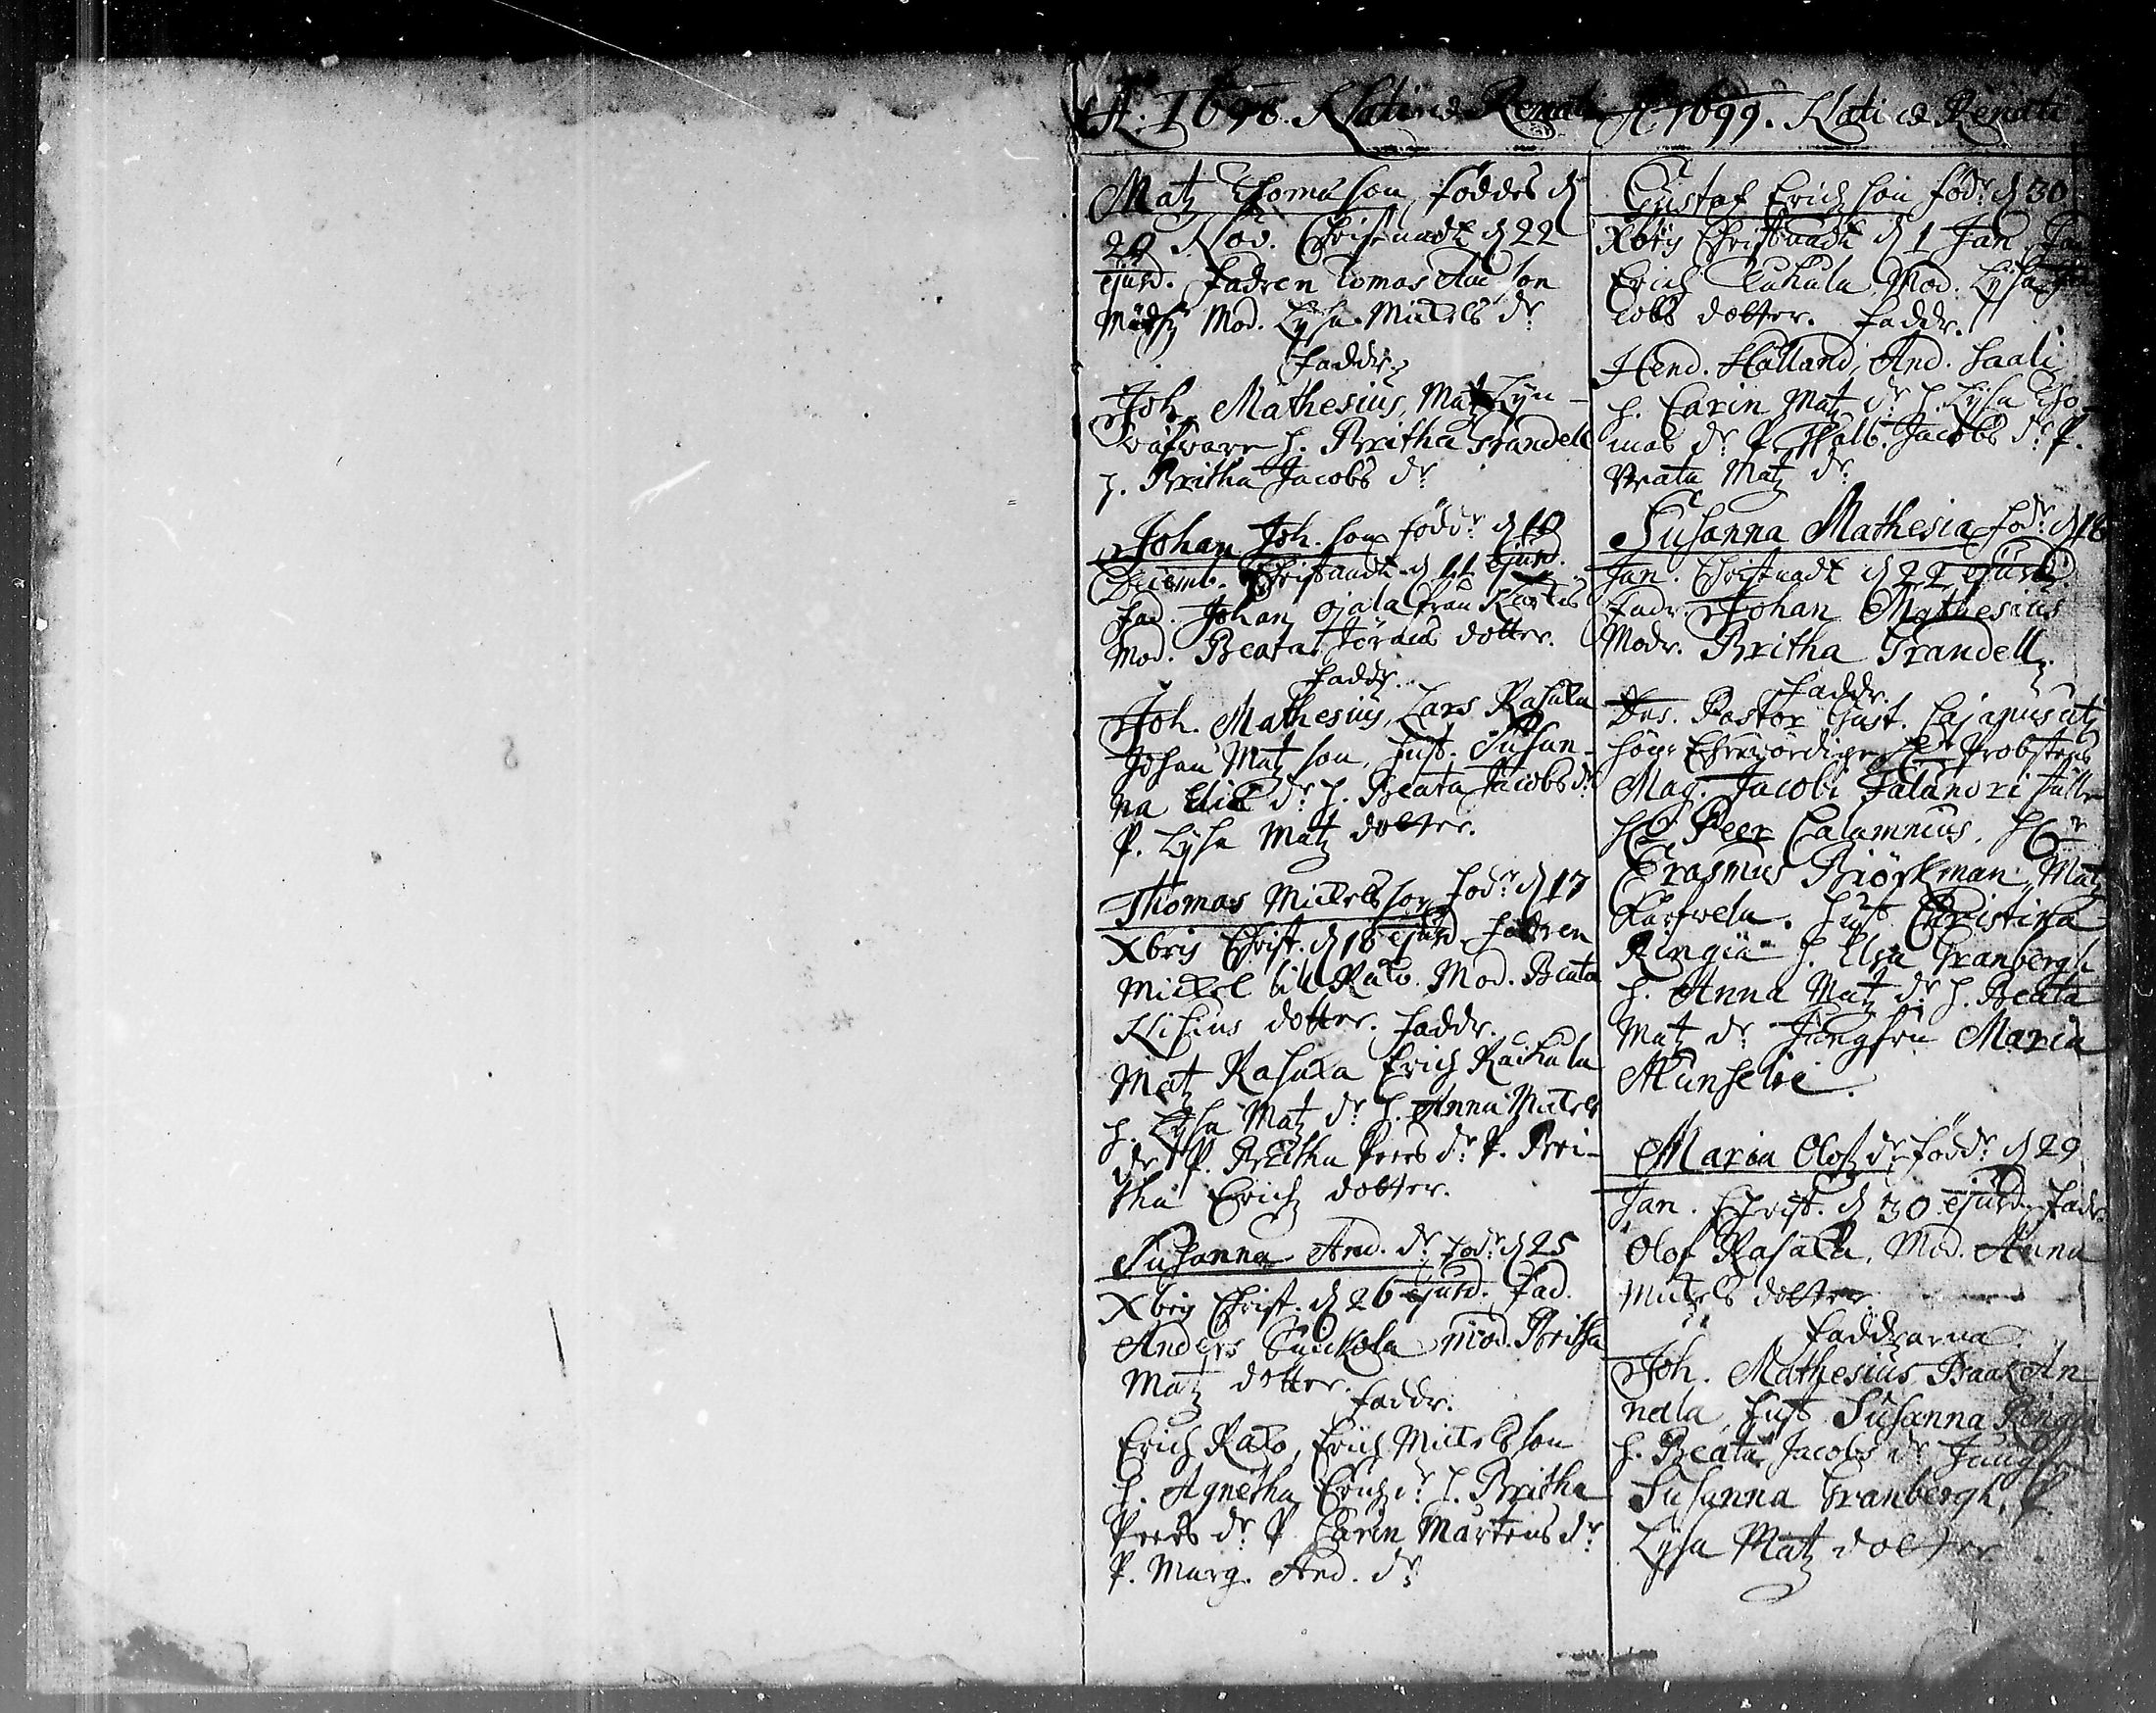 A. 1698. Nati et Renati
Matz Thomasson föddes d
20 Nov. Christnadt d 22
ejusd. Fadren Tomas
Mod. Lysa Mickels dr
Faddr.
Joh. Mathesius, Matz Lyn-
h. Britha Grandell
h. Britha Jacobs dr
Johan Joh. son född d 10
Decemb. Christnadt d 11 ejusd.
Fad. Johan Ojala från
Mod. Beata Jörans dotter.
Faddr.
Joh. Mathesius, Lars Rasala
Johan Matz son, hust. Susan-
na dr h. Beata Jacobs dr
P. Lysa Matz dotter.
Thomas Mickels son föd d 17
Xbris Christ. d 18 ejusd. Fadren
Mickel till Kato. Mod. Beata
dotter. Faddr.
Matz Rasala Erich
h. Lysa Matz dr h. Anna Mickels
dr P. Britha Peers dr P. Bri-
tha Erichz dotter.
Susanna And. dr föd d 25
Xbris Christ. d 26 ejusd. Fad.
Anders mod. Britha
Matz dotter.
Faddr.
Erich Kato, Erich Mickels son
h. Agnetha Erichz dr h. Britha
Peers dr P. Carin Mårtens dr
P. Marg. And. dr
A. 1699. Nati et Renati
Gustaf Erichson född d 30
Xbris Christnadt d 1 Jan Fad
Erich Mod. Lysa Ja
cobs dotter. Faddr.
Hend. Halland, And. Saali
h. Carin Matz dr h. Lysa Tho-
mas dr P. Walb. Jacobs dr P.
Beata Matz dr
Susanna Mathesia föd d 18
Jan. Christnadt d 22 ejusd.
Fadr. Johan Mathesius
Modr. Britha Grandell.
Faddr.
Dns. Pastor Gust. Cajanus
Probstens
Mag. Jacobi Falandri ställe
Hr Peer Calamnius, Hr
Erasmus Biörkman, Matz
hust Christina
Ringia h. Elsa Granbergh
h. Anna Matz dr h. Beata
Matz dr Jungfru Maria
Munselie.
Maria Olofz dr född d 29
Jan. Christ. d 30 ejusd. Fadr.
Olof Rasala, Mod. Anna
Mickels dotter
Faddrarna
Joh. Mathesius Isaak An
nala, hust Susanna Ringia
h. Beata Jacobs dr Jungfru
Susanna Granbergh, P.
Lysa Matz dotter